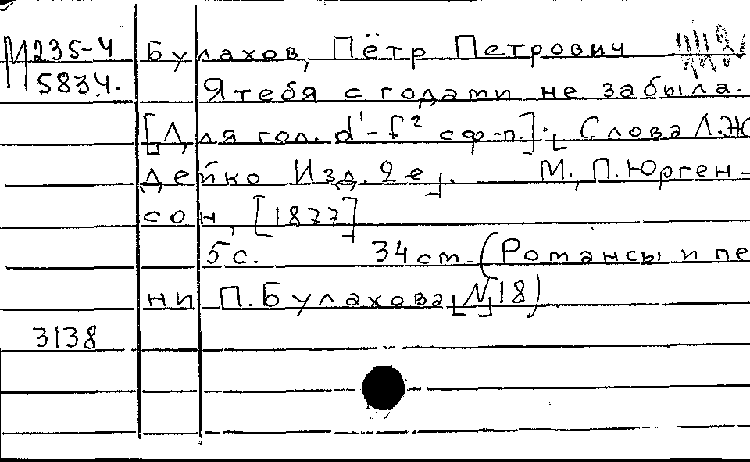 М 235-4 Булахов, Пётр Петрович
5834. Я тебя с годами не забыла.
[Для гол. d¹-f² с ф-п.]. [Слова Л.Жо
дейко Изд. 2е]. М., П.Юрген-
сон, [1877]
5 с. 34 см (Романсы и пе
ни П.Булахова [N] 18)
3138